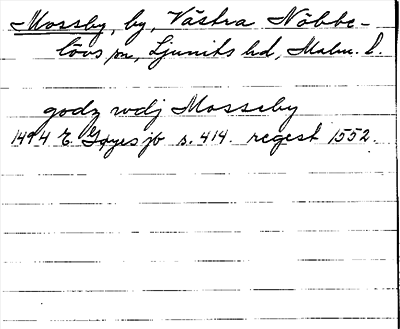 Mossby, by, Västra Nöbbe-
lövs sn, Ljunits hd, Malm. l.
godz wdj Mosseby
1494 E Gøyes jb s. 414. regest 1552.